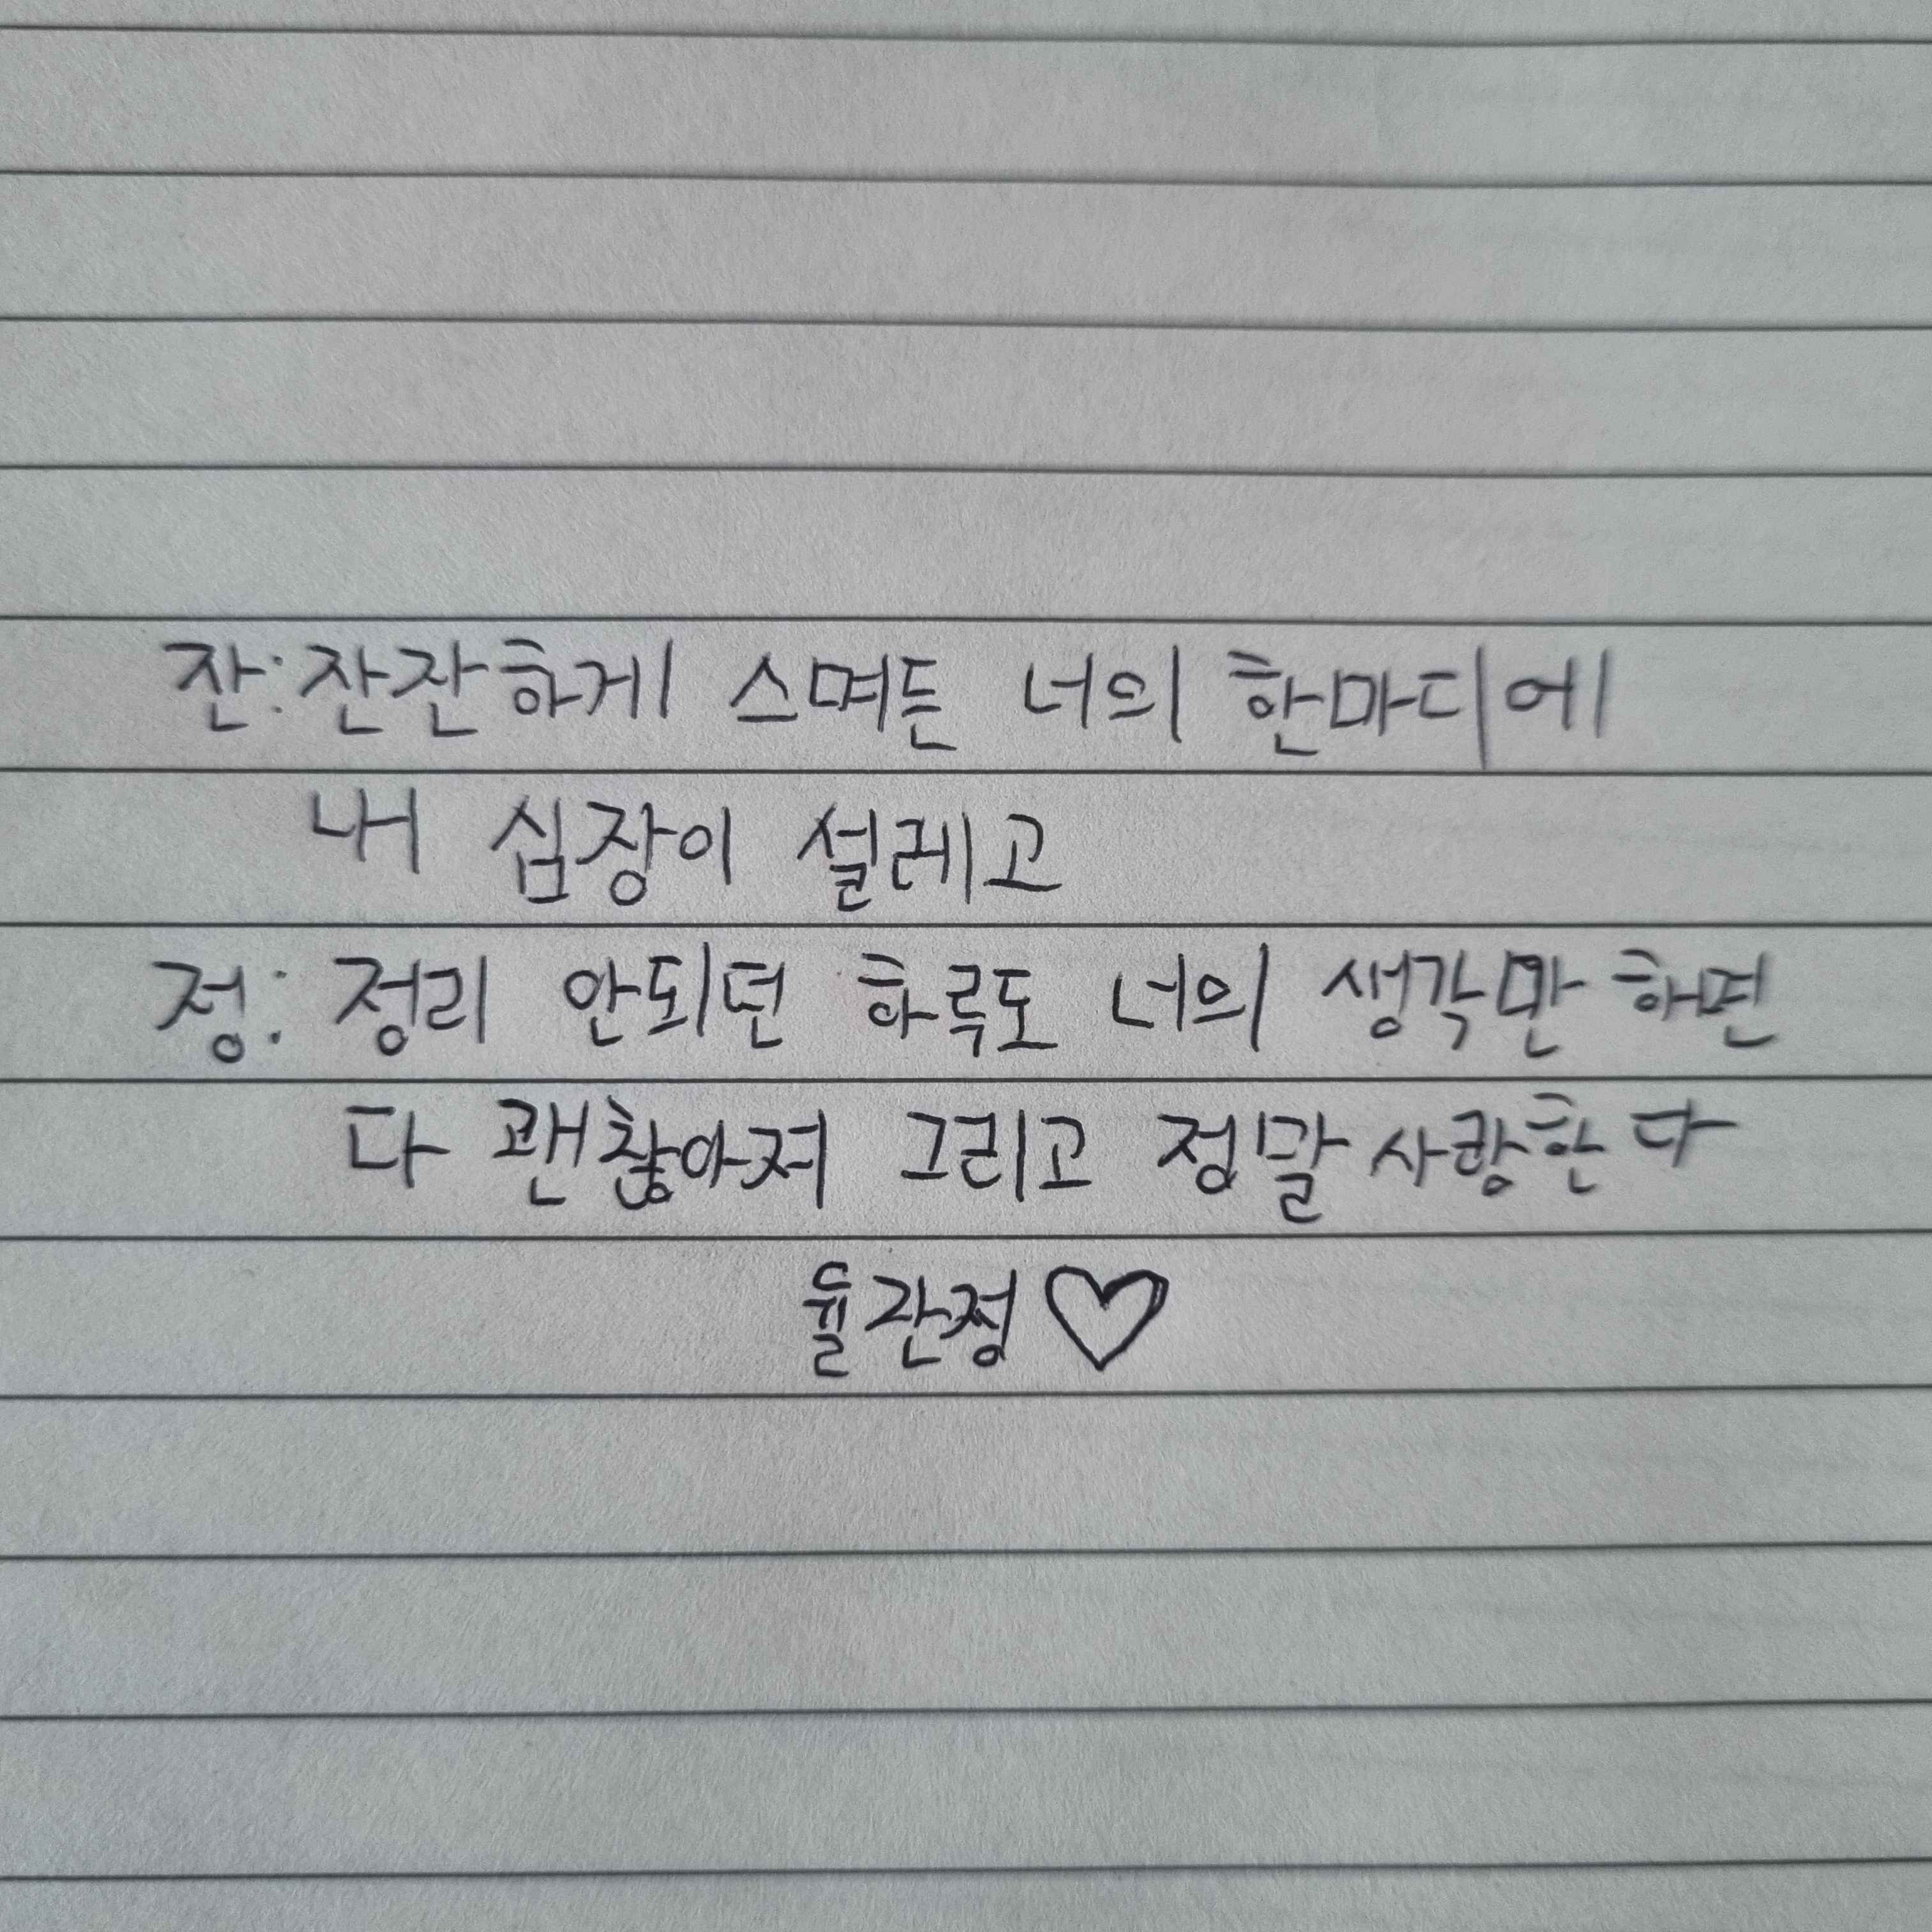 잔: 잔잔하게 스며든 너의 한마디에
내 심장이 설레고
정: 정리 안되던 하루도 너의 생각만 하면
다 괜찮아져 그리고 정말 사랑한다
율잔정♡